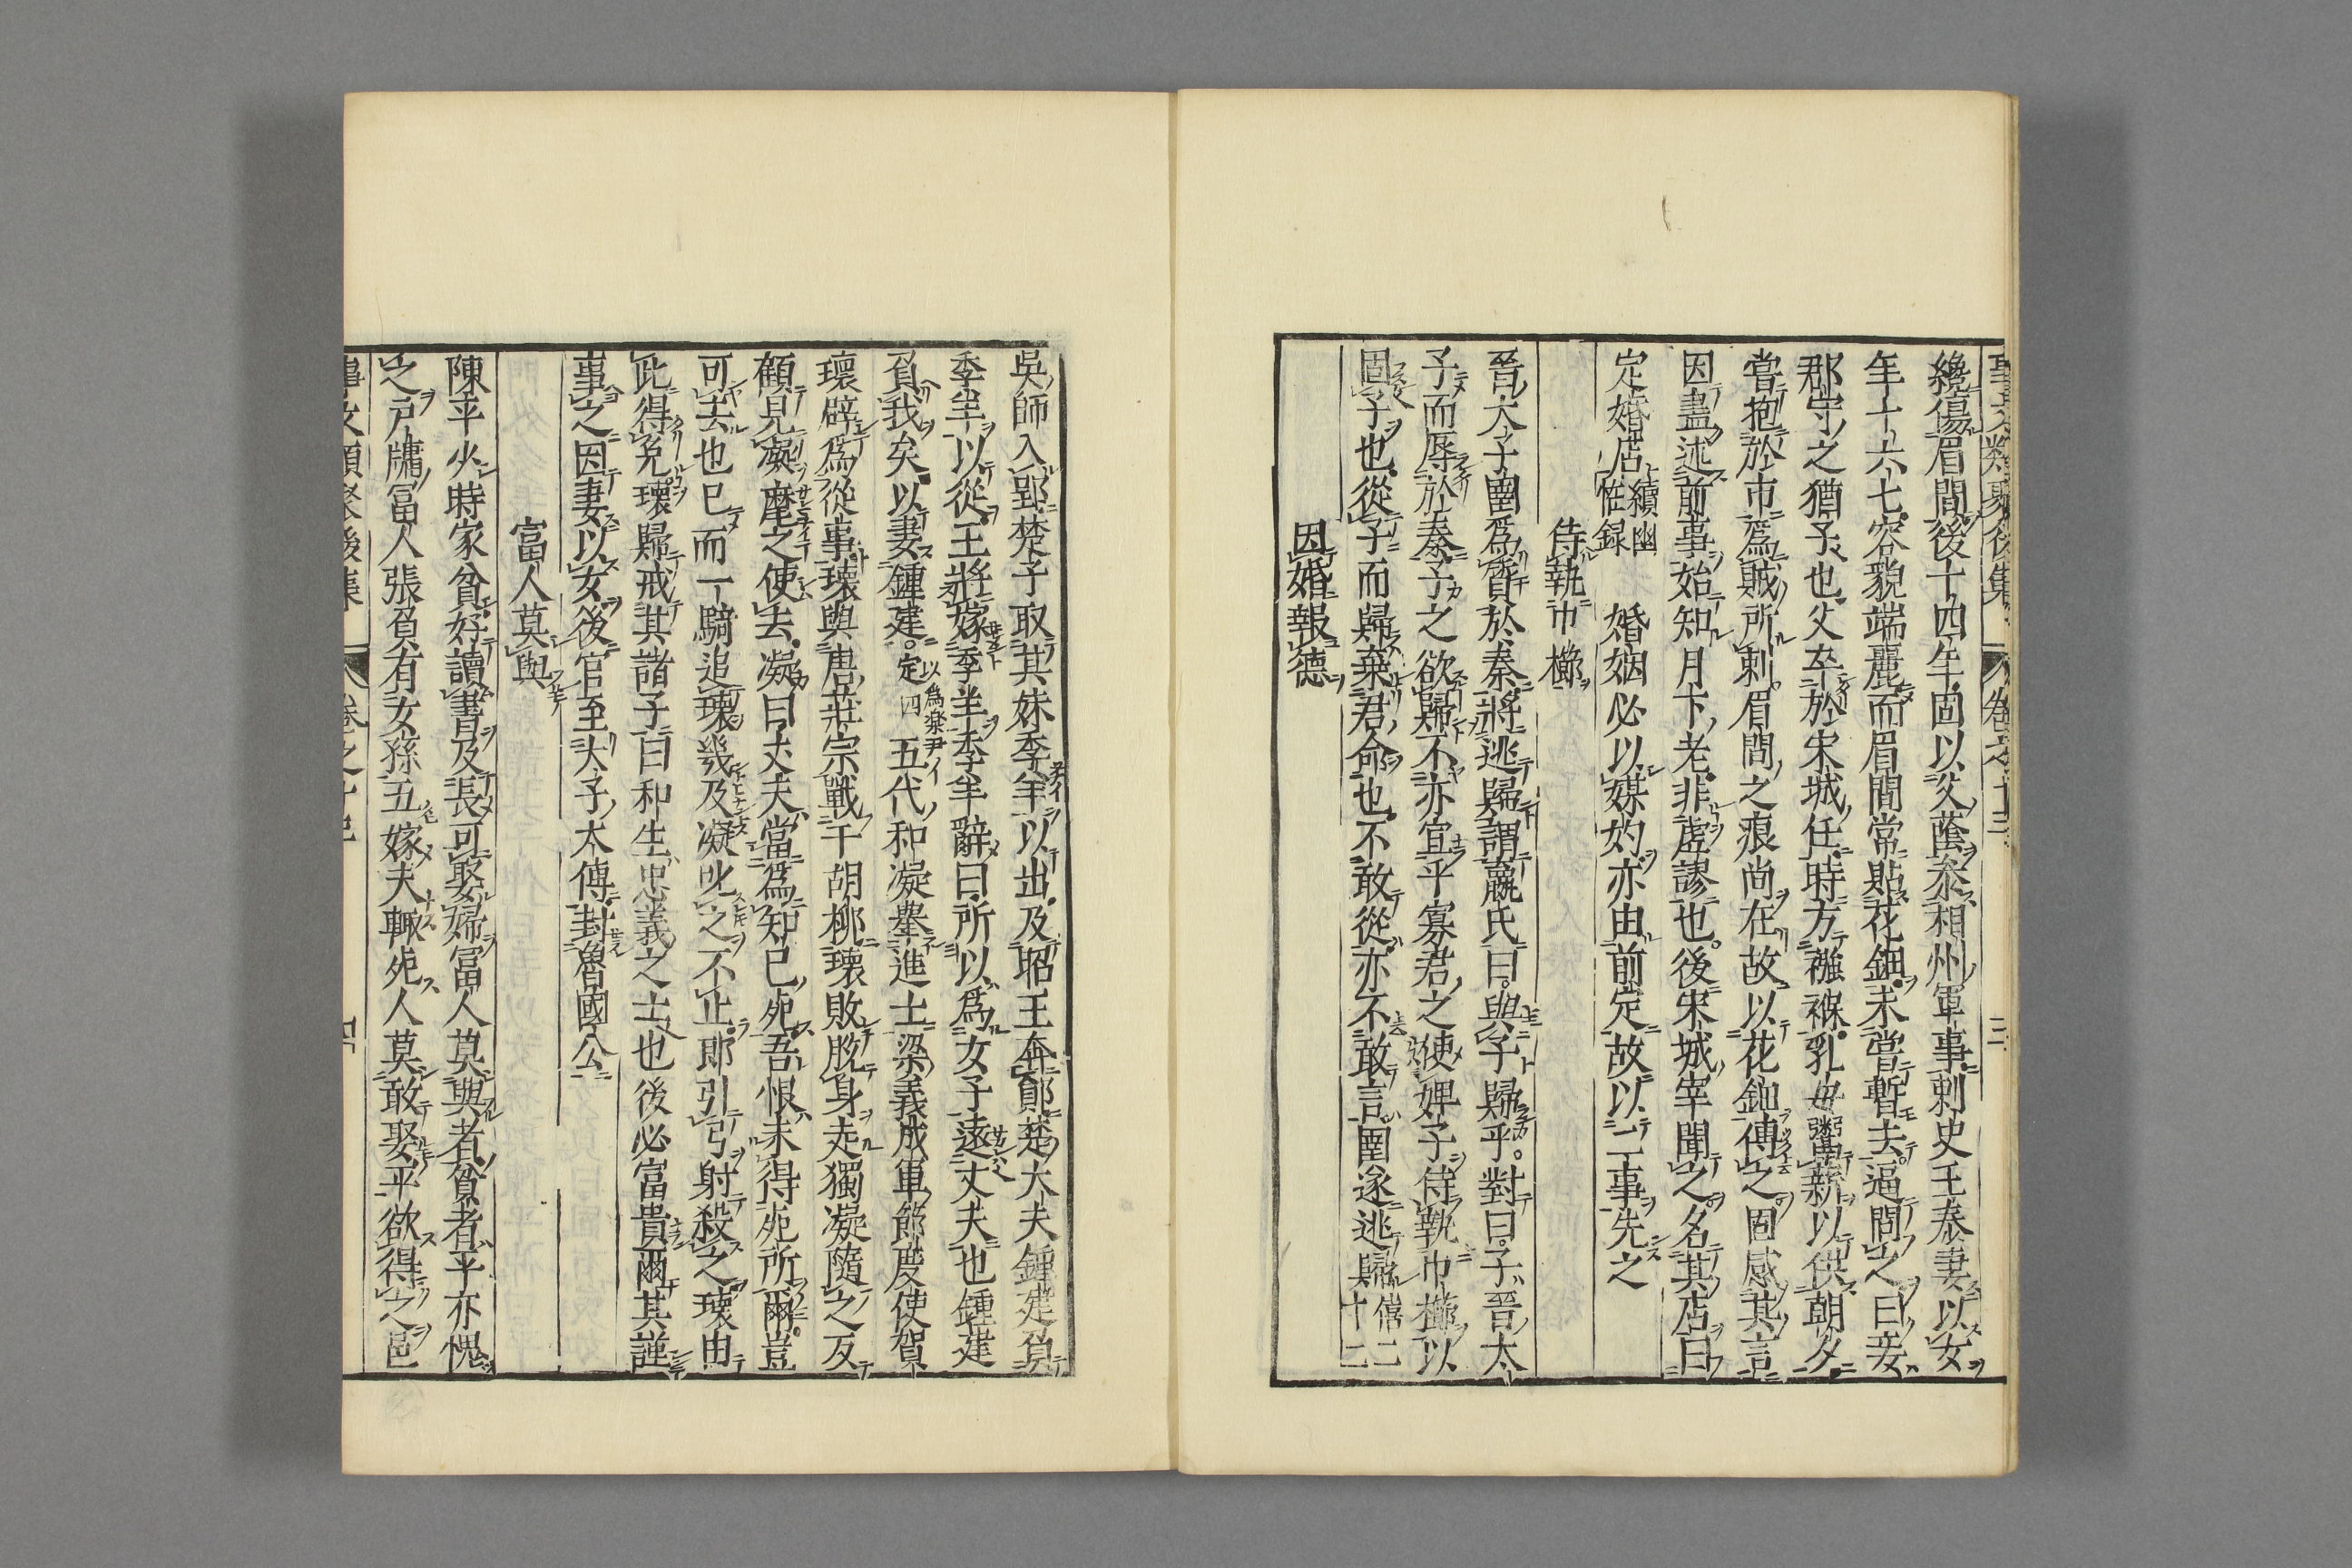 事文類聚後集 卷之十三 三
纔傷眉間後十四年固以父蔭泰相州軍事剌史王泰妻以女
年十六七容貌端麗而眉間常貼花鈿未嘗暫去逼問之曰妾
郡守之猶子也父卒於宋城任時方襁褓乳母鬻薪以供朝夕
嘗抱於市爲賊所刺眉間之痕尚在故以花鈿傅之固感其言
因盡述前事始知月下老非虛謬也後宋城宰聞之名其店曰
定婚店續幽恠録 婚姻必以媒妁亦由前定故以二事先之
侍執巾櫛
晉大子圉爲質於秦將逃歸謂嬴氏曰與子歸乎對曰子晉太
子而辱於秦子之欲歸不亦宜乎寡君之使婢子侍執巾櫛以
固子也從子而歸棄君命也不敢從亦不敢言圉遂逃歸僖二十二
因婚報德
吳師入郢楚子取其妹季羋以出及昭王奔鄖楚大夫鍾建負
季羋以從王將嫁季羋季羋辭曰所以爲女子遠丈夫也鍾建
負我矣以妻鍾建以爲樂尹定四 五代和凝舉進士梁義成軍節度使賀
瓌辟爲從事瓌與唐莊宗戰于胡柳瓌敗脫身走獨凝隨之反
顧見凝麾之使去凝曰丈夫當爲知己死吾恨未得死所爾豈
可去也已而一騎追瓌幾及凝叱之不止即引弓射殺之瓌由
此得免瓌歸戒其諸子曰和生忠義之士也後必富貴爾其謹
事之因妻以女後官至太子太傅封魯國公
富人莫與
陳平少時家貧好讀書及長可娶婦富人莫與者貧者平亦愧
之戸牖富人張負有女孫五嫁夫輒死人莫敢娶平欲得之邑
事文類聚後集 卷之十三 四